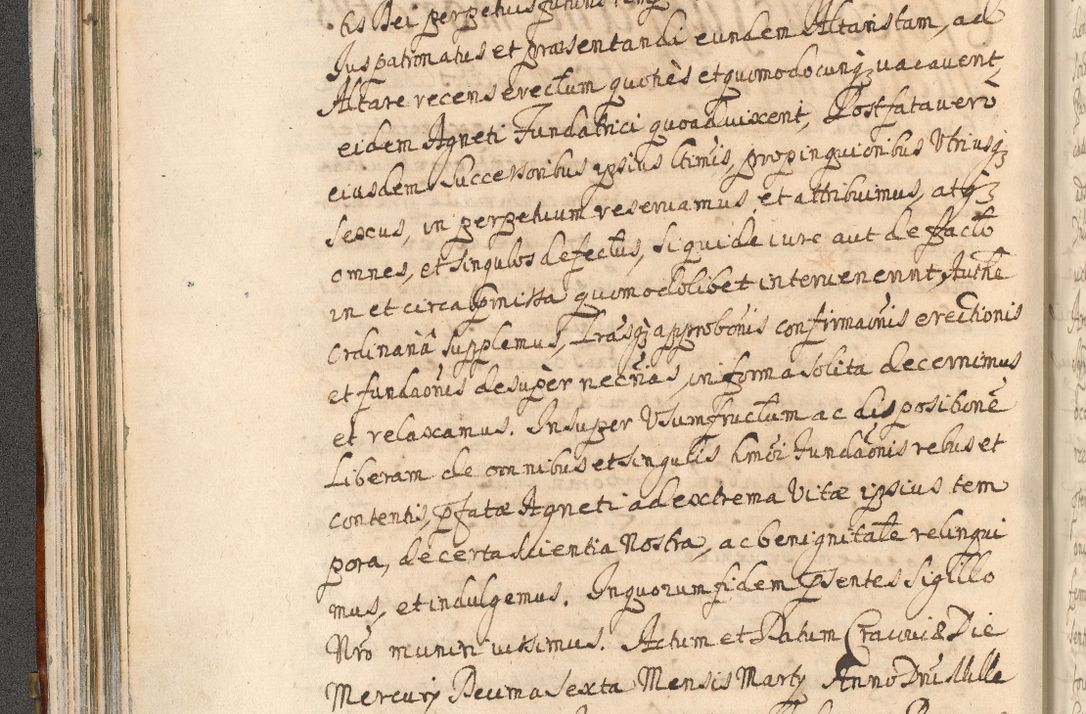 Jus patronatus et præsentandi eundem Altaristam, ad
Altare recens erectum quotiès et quomodocunqz vacavent,
eidem Agneti Fundatrici quoad vixerit, Post fata verò
eiusdem Successoribus ipsius ltimis, propinquioribus Utriusqz
sexus, in perpetuum reservamus, et attribuimus, atqz
omnes, et singulos defectus, siqui de iure aut de facto
in et circa pmissa quomodolibet intervenerint, Authe
Ordinariâ supplemus, Lrasqz approbonis confirmaonis erectionis
et fundaonis desuper necrias, in forma solita decernimus
et relaxamus. Insuper Usumfructum ac dispositionē
Liberam de omnibus et singulis hmoi Fundaonis rebus et
contentis, pfatæ Agneti ad extrema Vitæ ipsius tem
pora, de certa scientia Nostra, ac benignitate relinqui
mus, et indulgemus. In quorum fidem psentes Sigillo
Nro muniri iussimus. Actum et Datum Cracoviæ Die
Mercurij Decima Sexta Mensis Martij Anno Dni Mille